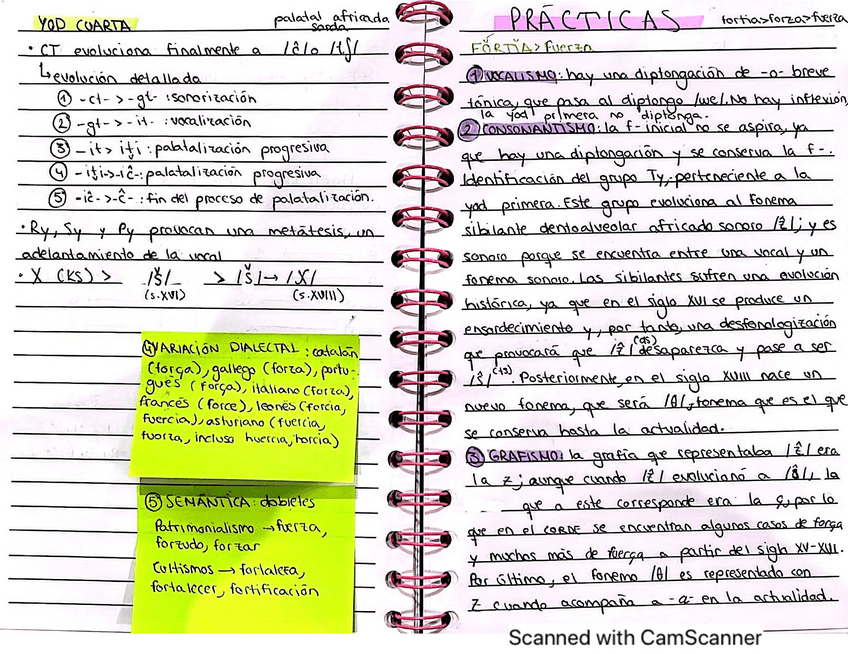 YOD CUARTA
palatal africada
sorda
· CT evoluciona finalmente a /ĉ/ o /tʃ/
↳ evolución detallada
① -ct- > -gt- : sonorización
② -gt- > -it- : vocalización
③ -it > iţi : palatalización progresiva
④ -iţi->-iĉ-: palatalización progresiva
⑤ -iĉ->-ĉ-: fin del proceso de palatalización.
· Ry, Sy y Py provocan una metátesis, un
adelantamiento de la vocal
· X (KS) > /š/ > /š/ → /X/
(s.XVI) (s.XVIII)
④ VARIACIÓN DIALECTAL : catalán
(força), gallego (forza), portu-
gués (força), italiano (forza),
francés (force), leonés (forcia,
fuercia), asturiano (fuercia,
fuorza, incluso huercia, horcia)
⑤ SEMÁNTICA: dobletes
Patrimonialismo → fuerza,
forzudo, forzar
Cultismos → fortaleza,
fortalecer, fortificación
PRÁCTICAS
fortia>forza>fuerza
FŎRTĬA > fuerza
① VOCALISMO: hay una diptongación de -o- breve
tónica, que pasa al diptongo /we/. No hay inflexión,
la yod primera no diptonga.
② CONSONANTISMO: la f- inicial no se aspira, ya
que hay una diptongación y se conserva la f-.
Identificación del grupo Ty, perteneciente a la
yod primera. Este grupo evoluciona al fonema
sibilante dentoalveolar africado sonoro /ẑ/; y es
sonoro porque se encuentra entre una vocal y un
fonema sonoro. Las sibilantes sufren una evolución
histórica, ya que en el siglo XVI se produce un
ensordecimiento y, por tanto, una desfonologización
que provocará que /ẑ/ (ds) desaparezca y pase a ser
/ŝ/ (ts). Posteriormente, en el siglo XVIII nace un
nuevo fonema, que será /θ/, fonema que es el que
se conserva hasta la actualidad.
③ GRAFISMO: la grafía que representaba /ẑ/ era
la z; aunque cuando /ẑ/ evolucionó a /ŝ/, la
que a este corresponde era la ç, por lo
que en el CORDE se encuentran algunos casos de força
y muchos más de fuerça a partir del siglo XV-XVII.
Por último, el fonemo /θ/ es representado con
z cuando acompaña a -a- en la actualidad.
Scanned with CamScanner